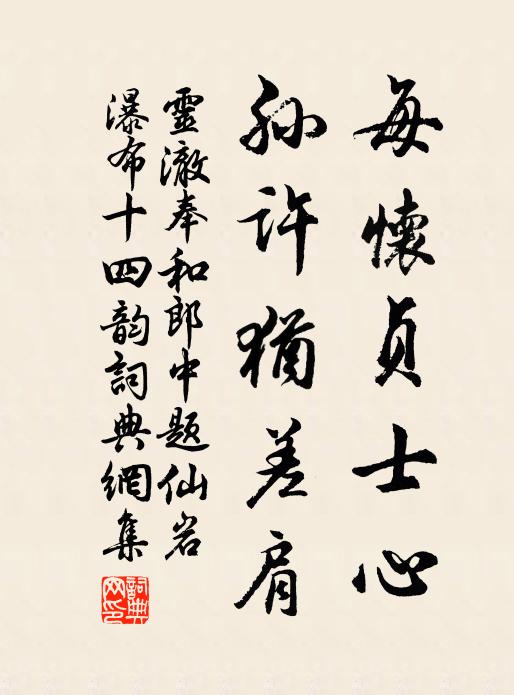 每懷貞士心
孙許猶差肩
靈澈奉和郎中题仙岩
瀑布十四韵詞典網集
詞典網印